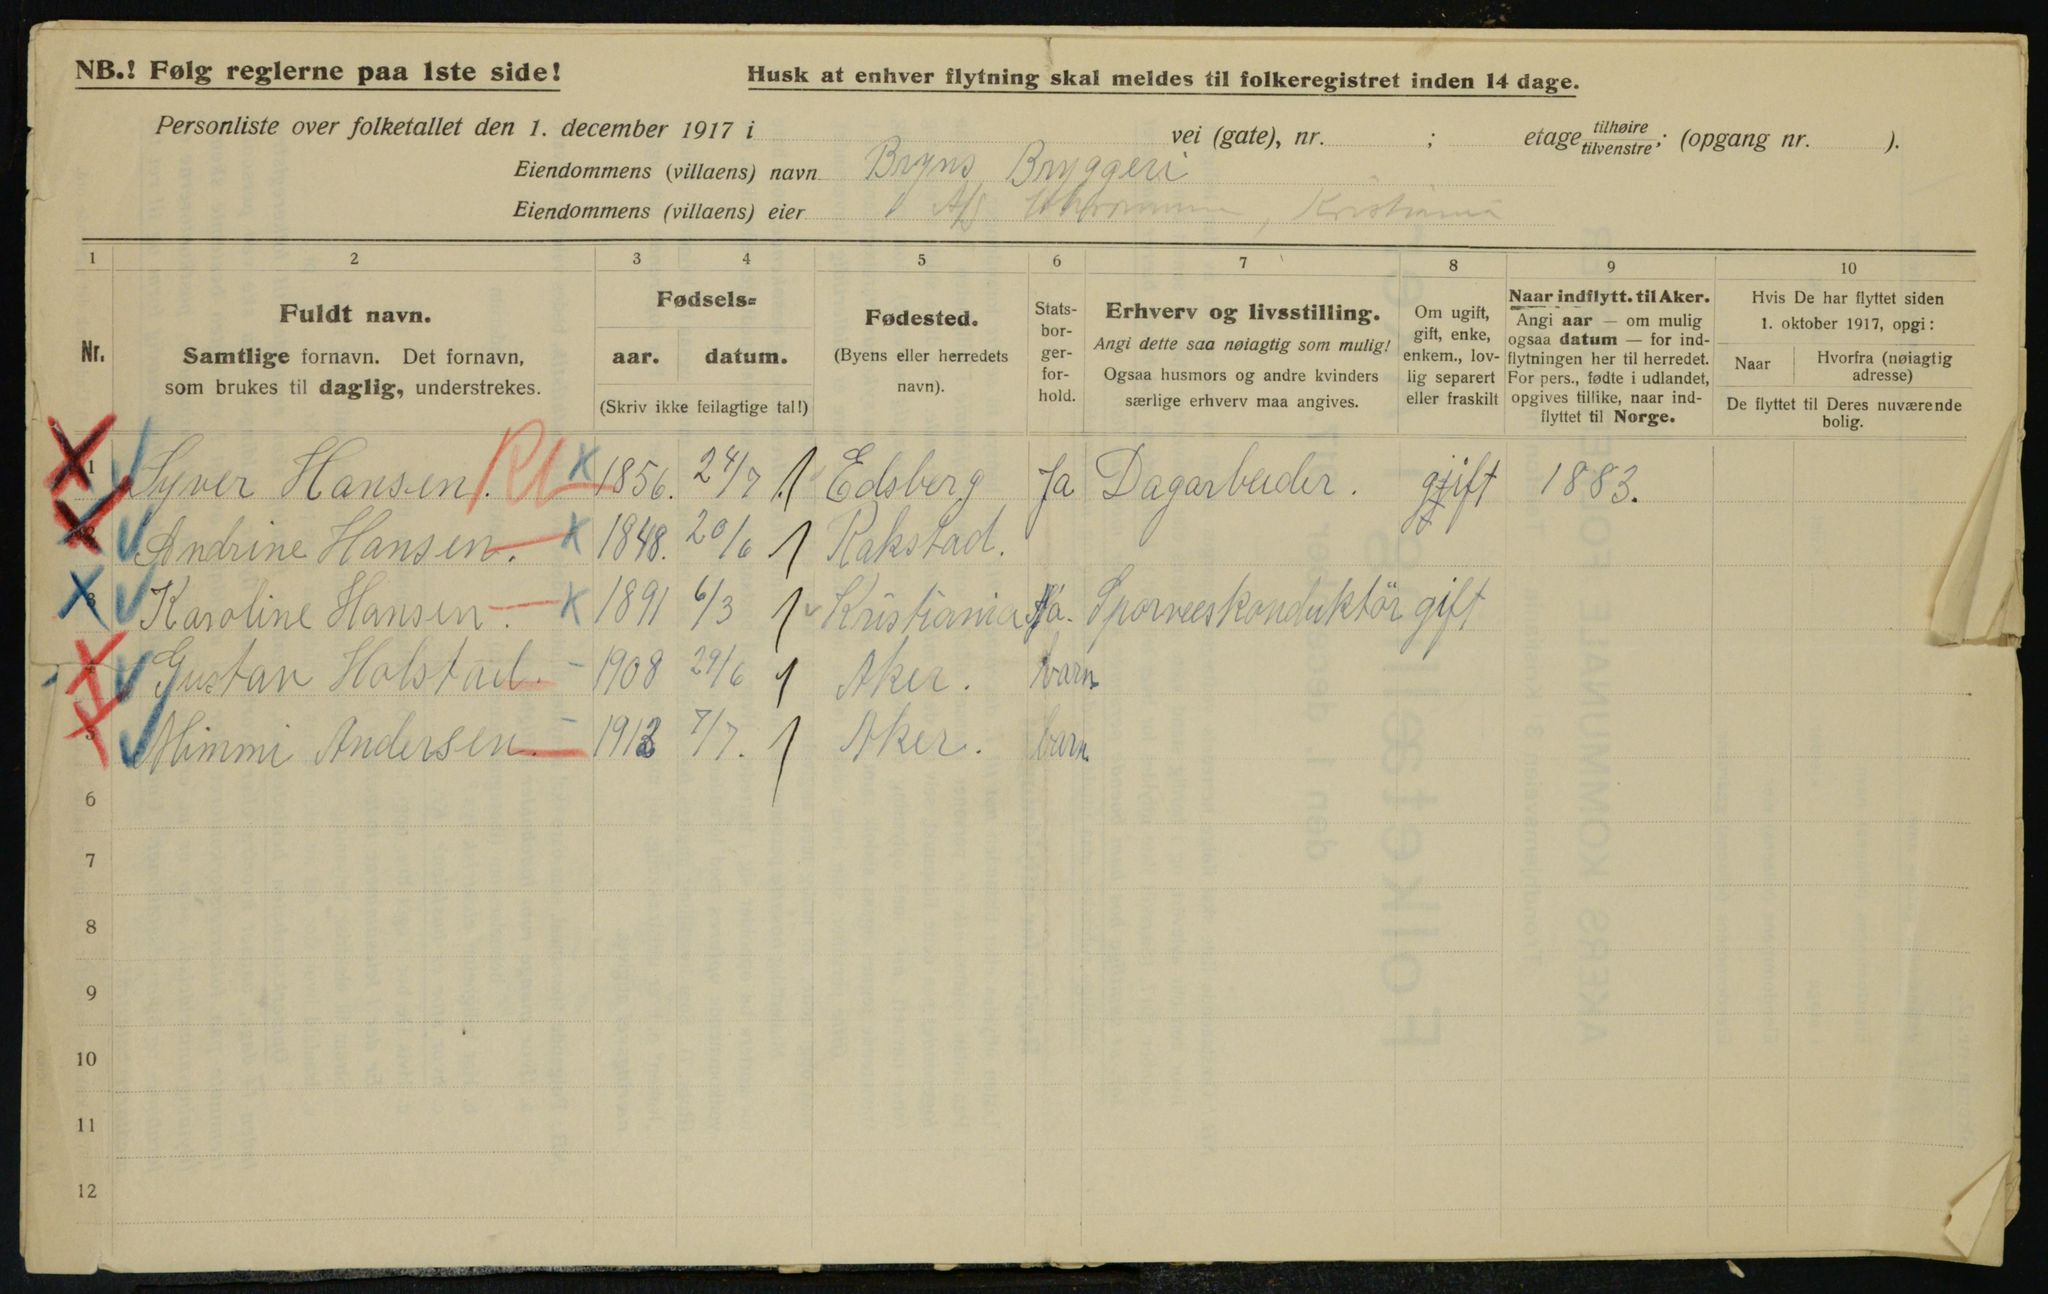 NB.! Følg reglerne paa 1ste side!
Husk at enhver flytning skal meldes til folkeregistret inden 14 dage.
Personliste over folketallet den 1. december 1917 i vei (gate), nr. ; etage tilhøire tilvenstre; (opgang nr. ).
Eiendommens (villaens) navn Bryns Bryggeri
Eiendommens (villaens) eier A/S , Kristiania
1 2 3 4 5 6 7 8 9 10
Nr.
Fuldt navn.
Samtlige fornavn. Det fornavn,
som brukes til daglig, understrekes.
Fødsels=
aar. datum.
(Skriv ikke feilagtige tal!)
Fødested.
(Byens eller herredets
navn).
Stats-
bor-
ger-
for-
hold.
Erhverv og livsstilling.
Angi dette saa nøiagtig som mulig!
Ogsaa husmors og andre kvinders
særlige erhverv maa angives.
Om ugift,
gift, enke,
enkem., lov-
lig separert
eller fraskilt
Naar indflytt. til Aker.
Angi aar — om mulig
ogsaa datum — for ind-
flytningen her til herredet.
For pers., fødte i udlandet,
opgives tillike, naar ind-
flyttet til Norge.
Hvis De har flyttet siden
1. oktober 1917, opgi:
Naar
Hvorfra (nøiagtig
adresse)
De flyttet til Deres nuværende
bolig.
1 Syver Hansen. 1856. 24/7 Edsberg Ja Dagarbeider. gift 1883.
2 Andrine Hansen. 1848. 20/6 Rakstad.
3 Karoline Hansen. 1891 6/3 Kristiania Ja. Sporveiskonduktör gift
4 Gustav Holstad. 1908 29/6 Aker. barn
5 Mimmi Andersen. 1912 7/7. Aker. barn
6
7
8
9
10
11
12